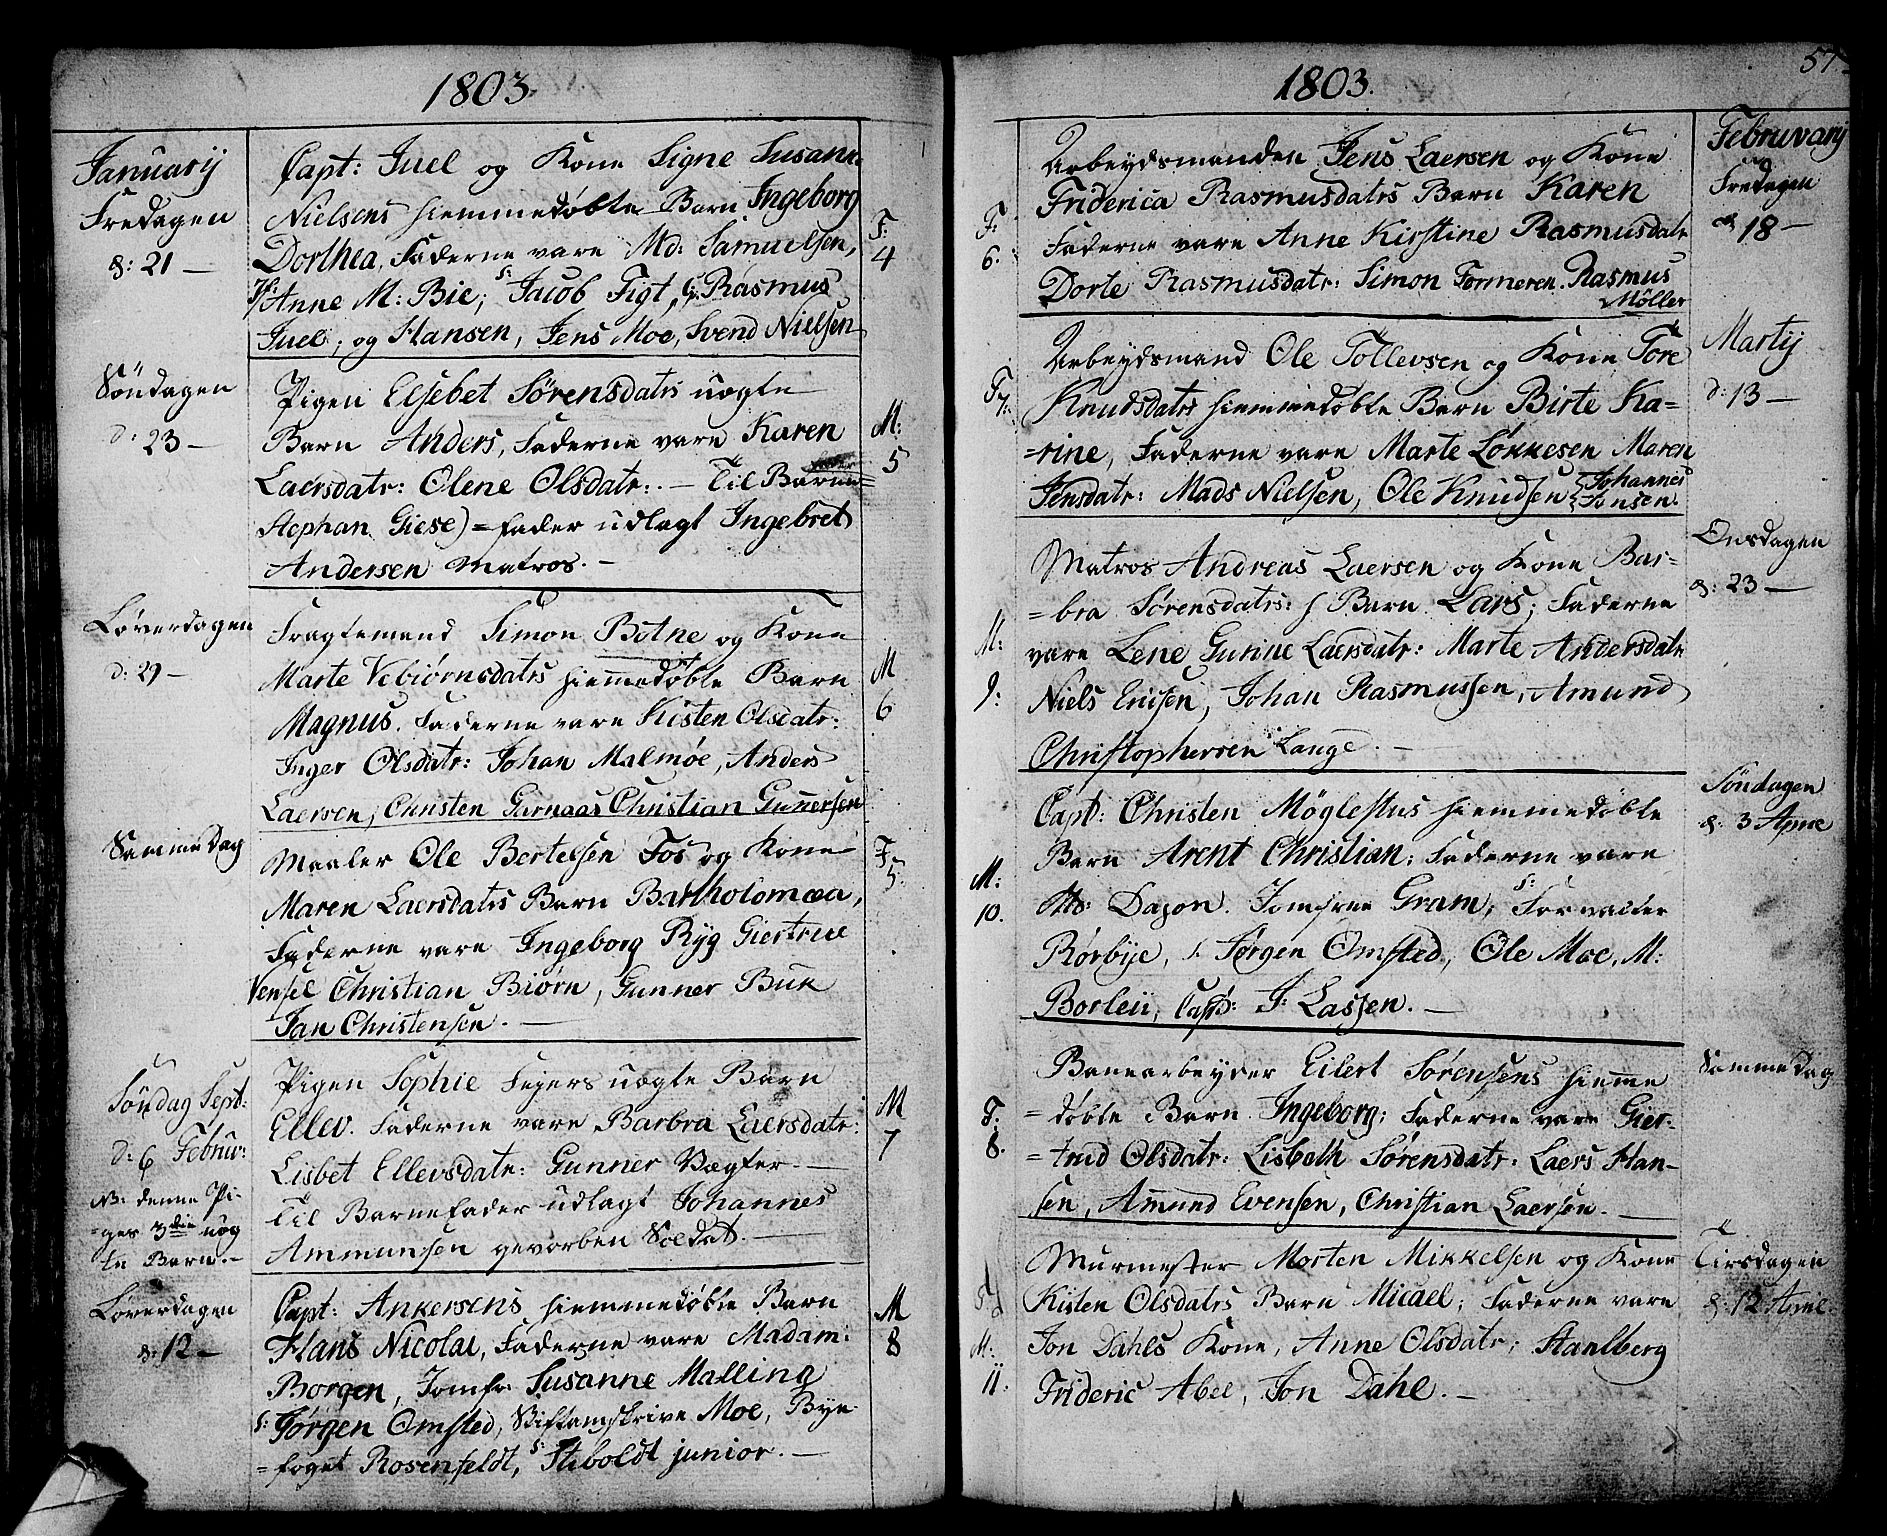 1803.
Januarij
Fredagen
d: 21 —
Capt: Juel og Kone Signe Susann.
Nielsens hiemmedøbte Barn Ingeborg
Dorthea, Fadderne vare Md: Samuelsen,
Anne M: Bie; S: Jacob Figt, Rasmus
Juel; og Hansen, Jens Moe, Svend Nielsen
F:
4
Søndagen
d: 23 —
Pigen Elsebet Sørensdatrs uægte
Barn Anders, Fadderne vare Karen
Laersdatr: Olene Olsdatr: — Til Barne=
Stephan Giese) = fader udlagt Ingebret
Andersen Matros. —
M:
5
Løverdagen
d: 29 —
Fragtemand Simon Botne og Kone
Marte Vebiørnsdatrs hiemmedøbte Barn
Magnus. Fadderne vare Kisten Olsdatr:
Inger Olsdatr: Johan Malmøe, Anders
Laersen, Christen Garnaas Christian Gunnersen
M
6
Samme Dag
Maaler Ole Bertelsen Fos og Kone
Maren Laersdatrs Barn Bartholomæa,
Fadderne vare Ingeborg Ryg Giertrue
Vensel Christian Biørn, Gunner Buk
Jan Christensen. —
F
5.
Søndag Sept:
d: 6 Februr:
NB: denne Pi-
=ges 3die uæg
te Barn. —
Pigen Sophie Fejers uægte Barn
Ellev. Fadderne vare Barbra Laersdatr:
Lisbet Ellevsdatr: Gunner Vægter. —
Til Barnefader udlagt Johannes
Ammunsen gevorben Soldat. —
M
7
Løverdagen
d: 12 —
Capt: Ankersens hiemmedøbte Barn
Hans Nicolai, Fadderne vare Madam:
Borgen, Jomfr. Susanne Malling
S: Jørgen Omsted, Stiftamtskrive Moe, Bye
=foget Rosenfeldt, S: Stiboldt junior. —
M
8
57
1803.
Februvarij
Fredagen
d 18 —
F:
6.
Arbeydsmanden Jens Laersen og Kone
Friderica Rasmusdatrs Barn Karen
Fadderne vare Anne Kirstine Rasmusdatr
Dorte Rasmusdatr: Simon Formeren. Rasmus
Møller
Martij
d: 13 —
F
7:
Arbeydsmand Ole Tollevsen og Kone Tore
Knudsdatrs hiemmedøbte Barn Birte Ka-
=rine, Fadderne vare Marte Løkkesen Maren
Jensdatr: Mads Nielsen, Ole Knudsen Johannes
Jonsen.
Onsdagen
d: 23 —
M:
9:
Matros Andreas Laersen og Kone Bar-
=bra Sørensdatrs: h Barn Lars; Fadderne
vare Lene Gurine Laersdatr: Marte Andersdatr
Niels Enisen, Johan Rasmussen, Amund
Christophersen Lange. —
Søndagen
d: 3 Aprie
M:
10.
Capt: Christen Møglestus hiemmedøbte
Barn Arent Christian; Fadderne vare
Md: Dason. Jomfrue Gram; S: Forvalter
Rørbye, S. Jørgen Omsted, Ole Moe, M:
Borleii, Capt: J: Lassen. —
Samme Dag
F:
8.
Banearbeyder Eilert Sørensens hiemme
=døbte Barn Ingeborg; Fadderne vare Gier-
=trud Olsdatr: Lisbeth Sørensdatr: Laers Han-
sen, Amund Evensen, Christian Laersen. —
Tirsdagen
d: 12 April.
M:
11.
Murmester Morten Mikkelsen og Kone
Kisten Olsdatrs Barn Micael; Fadderne vare
Jon Dahls Kone, Anne Olsdatr; Stanlberg
Frideric Abel, Jon Dahl. —